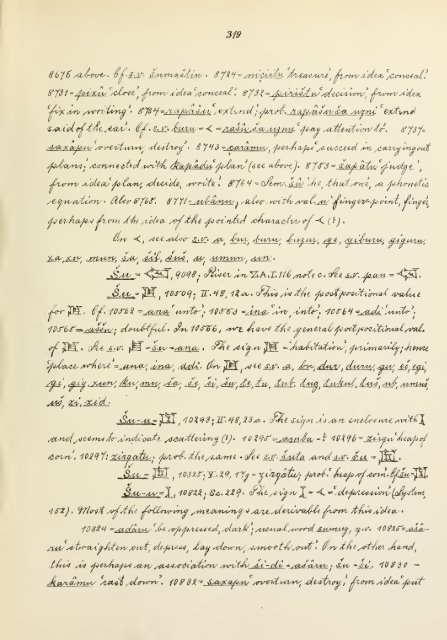 319
8676 above. Cf. s.v. šumaštin. 8724 = niçirtu 'treasure', from idea 'conceal.'
8731 = pixû 'close', from idea 'conceal.' 8732 = pirištu 'decision', from idea
'fix in writing.' 8734 = rapâšu 'extend'; prob. rapâšu ša uzni 'extend
said of the ear.' Cf. s.v. buru = = rašû ša uzni 'pay attention to.' 8737 -
saxâpu 'overturn, destroy.' 8743 = perhaps 'succeed in carrying out
plans'; connected with kapâdu 'plan' (see above). 8753 = šapâtu 'judge',
from idea 'plan, decide, write.' 8764 = Sem. šû 'he, that one', a phonetic
equation. Also 8765. 8771 - ubânu, also with val. u 'finger-point, finger',
perhaps from the idea of the pointed character of (?).
On see also s.v. a, bur, buru, buzur, ge, giburu, giguru,
xa, šuš, u, umun, un.
Šu = 9098; River in ZA. I. 116 note 6. See s.v. pan =
Šu = 10509; II. 48, 12a. This is the postpositional value
for Cf. 10562 = ana 'unto'; 10563 = ina 'in, into'; 10564 = adi 'unto';
10565 = doubtful. In 10566, we have the general postpositional val.
of See s.v. = šu = ana. The sign = 'habitation', primarily; hence
'place where' = ana, ina, adi. On see s.v. a, bu, dur, duru, gu, eš, egi,
gi, gig, xun, ku, mu, ša, še, ši, šu, te, tu, tub, tug, tukul, tuš, ub, umuš,
uš, zi, zid.
Šu-u = 10293; II. 48, 23a. The sign is an enclosure with
and seems to indicate scattering (?). 10295 = - ? 10296 = zirqu 'heap of
corn'. 10297: zirqatu; prob. the same. See s.v. šuta and s.v. šu =
Šu = 10325; V. 29, 17g = zirqâtu; prob. 'heap of corn.' Cf. šu =
Šu-u = 10822; Sc. 229. The sign = = 'depression' (System,
152). Most of the following meanings are derivable from this idea.
10824 = adâru 'be oppressed, dark'; usual word q.v. 10825 = ašâ-
ru 'straighten out, depress, lay down, smooth out.' On the other hand,
this is perhaps an association with ši-di = ašâru; šu = ši. 10830 -
karâmu 'cast down'. 10832 = saxapu 'overturn, destroy', from idea 'put